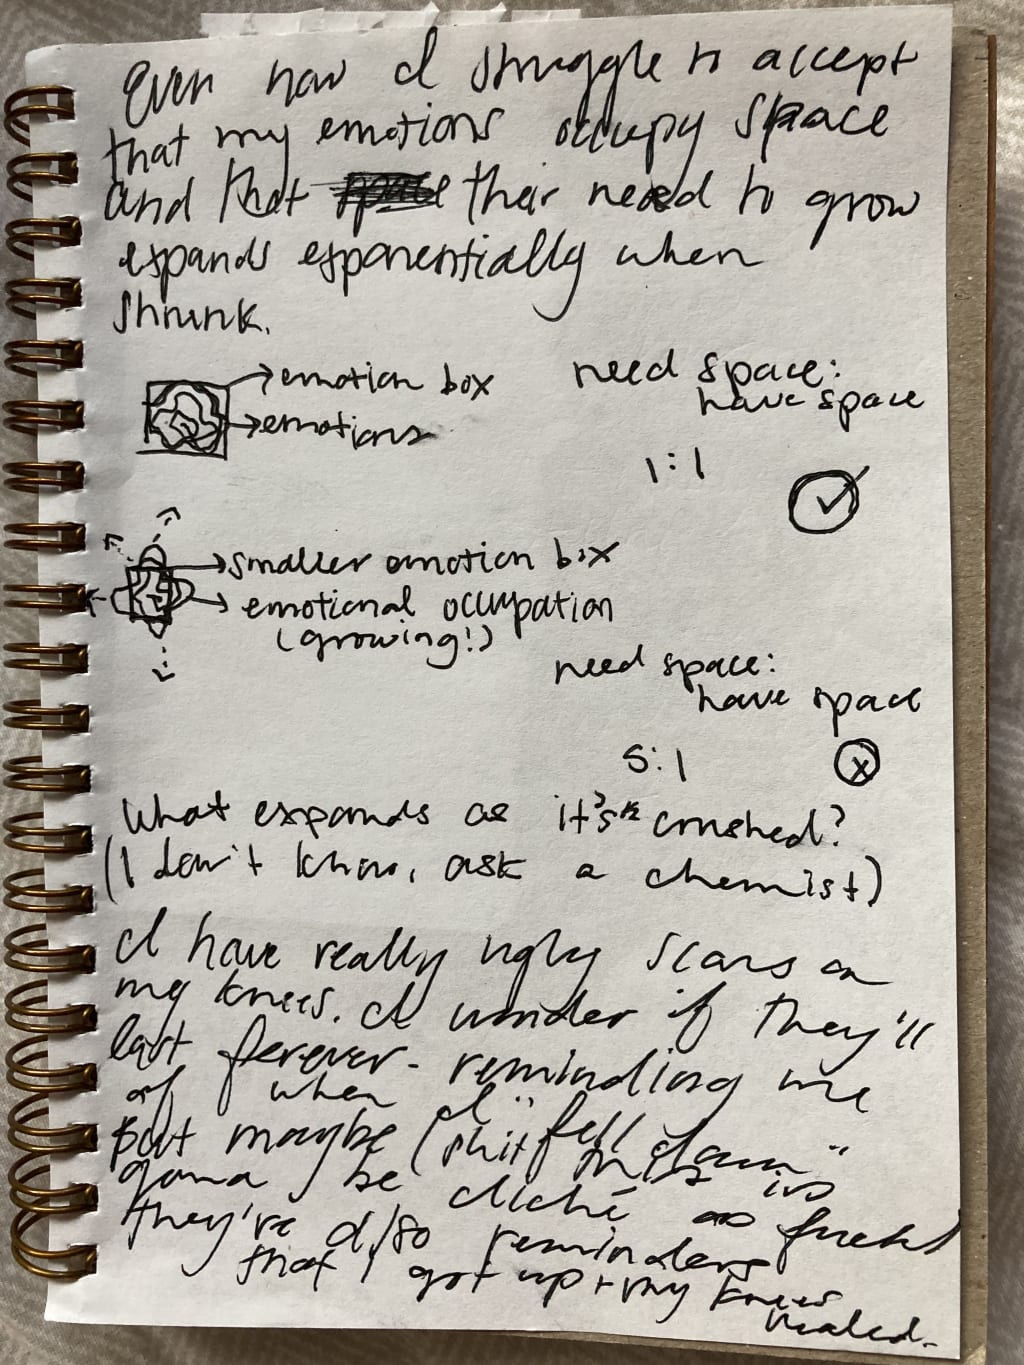 Even now I struggle to accept
that my emotions occupy space
and that their need to grow
expands exponentially when
shrunk.
emotion box
emotions
need space:
have space
1:1
smaller emotion box
emotional occupation
(growing!)
need space:
have space
5:1
x
What expands as it's crushed?
(I don't know, ask a chemist)
I have really ugly scars on
my knees. I wonder if they'll
last forever - reminding me
of when I "fell down"
but maybe (shit this is
gonna be cliché as fuck)
they're also reminders
that I got up + my knees
healed.